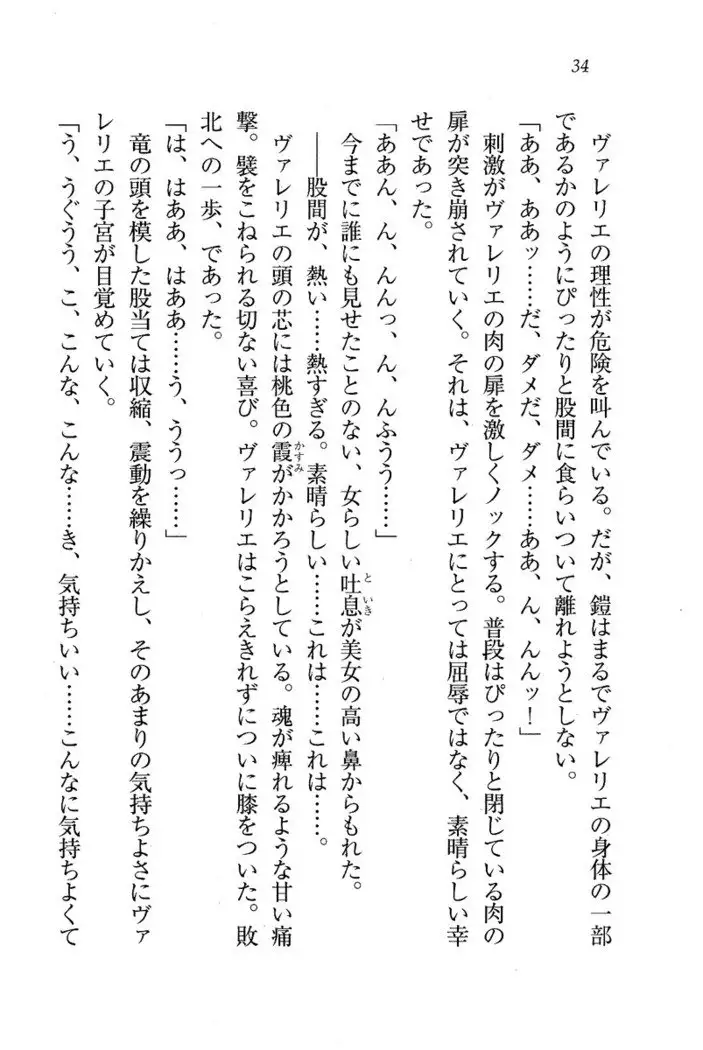 34
ヴァレリエの理性が危険を叫んでいる。だが、鎧はまるでヴァレリエの身体の一部
であるかのようにぴったりと股間に食らいついて離れようとしない。
「ああ、ああッ……だ、ダメだ、ダメ……ああ、ん、んんッ！」
刺激がヴァレリエの肉の扉を激しくノックする。普段はぴったりと閉じている肉の
扉が突き崩されていく。それは、ヴァレリエにとっては屈辱ではなく、素晴らしい幸
せであった。
「ああん、ん、んんっ、ん、んふうう……」
今までに誰にも見せたことのない、女らしい吐息が美女の高い鼻からもれた。
――股間が、熱い……熱すぎる。素晴らしい……これは……これは……。
ヴァレリエの頭の芯には桃色の霞がかかろうとしている。魂が痺れるような甘い痛
撃。襞をこねられる切ない喜び。ヴァレリエはこらえきれずについに膝をついた。敗
北への一歩、であった。
「は、はああ、はああ……う、ううっ……」
竜の頭を模した股当ては収縮、震動を繰りかえし、そのあまりの気持ちよさにヴァ
レリエの子宮が目覚めていく。
「う、うぐうう、こ、こんな、こんな……き、気持ちいい……こんなに気持ちよくて